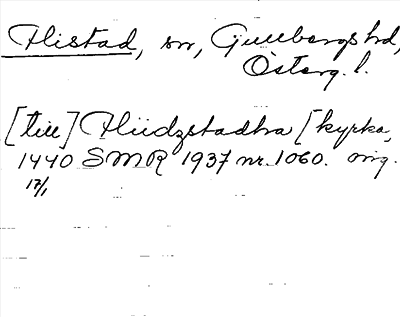 Flistad, sn, Gullbergs hd,
Österg. l.
[till] Fliidzstadha [kyrka,
1440 SMR 1937 nr. 1060. orig.
17/1